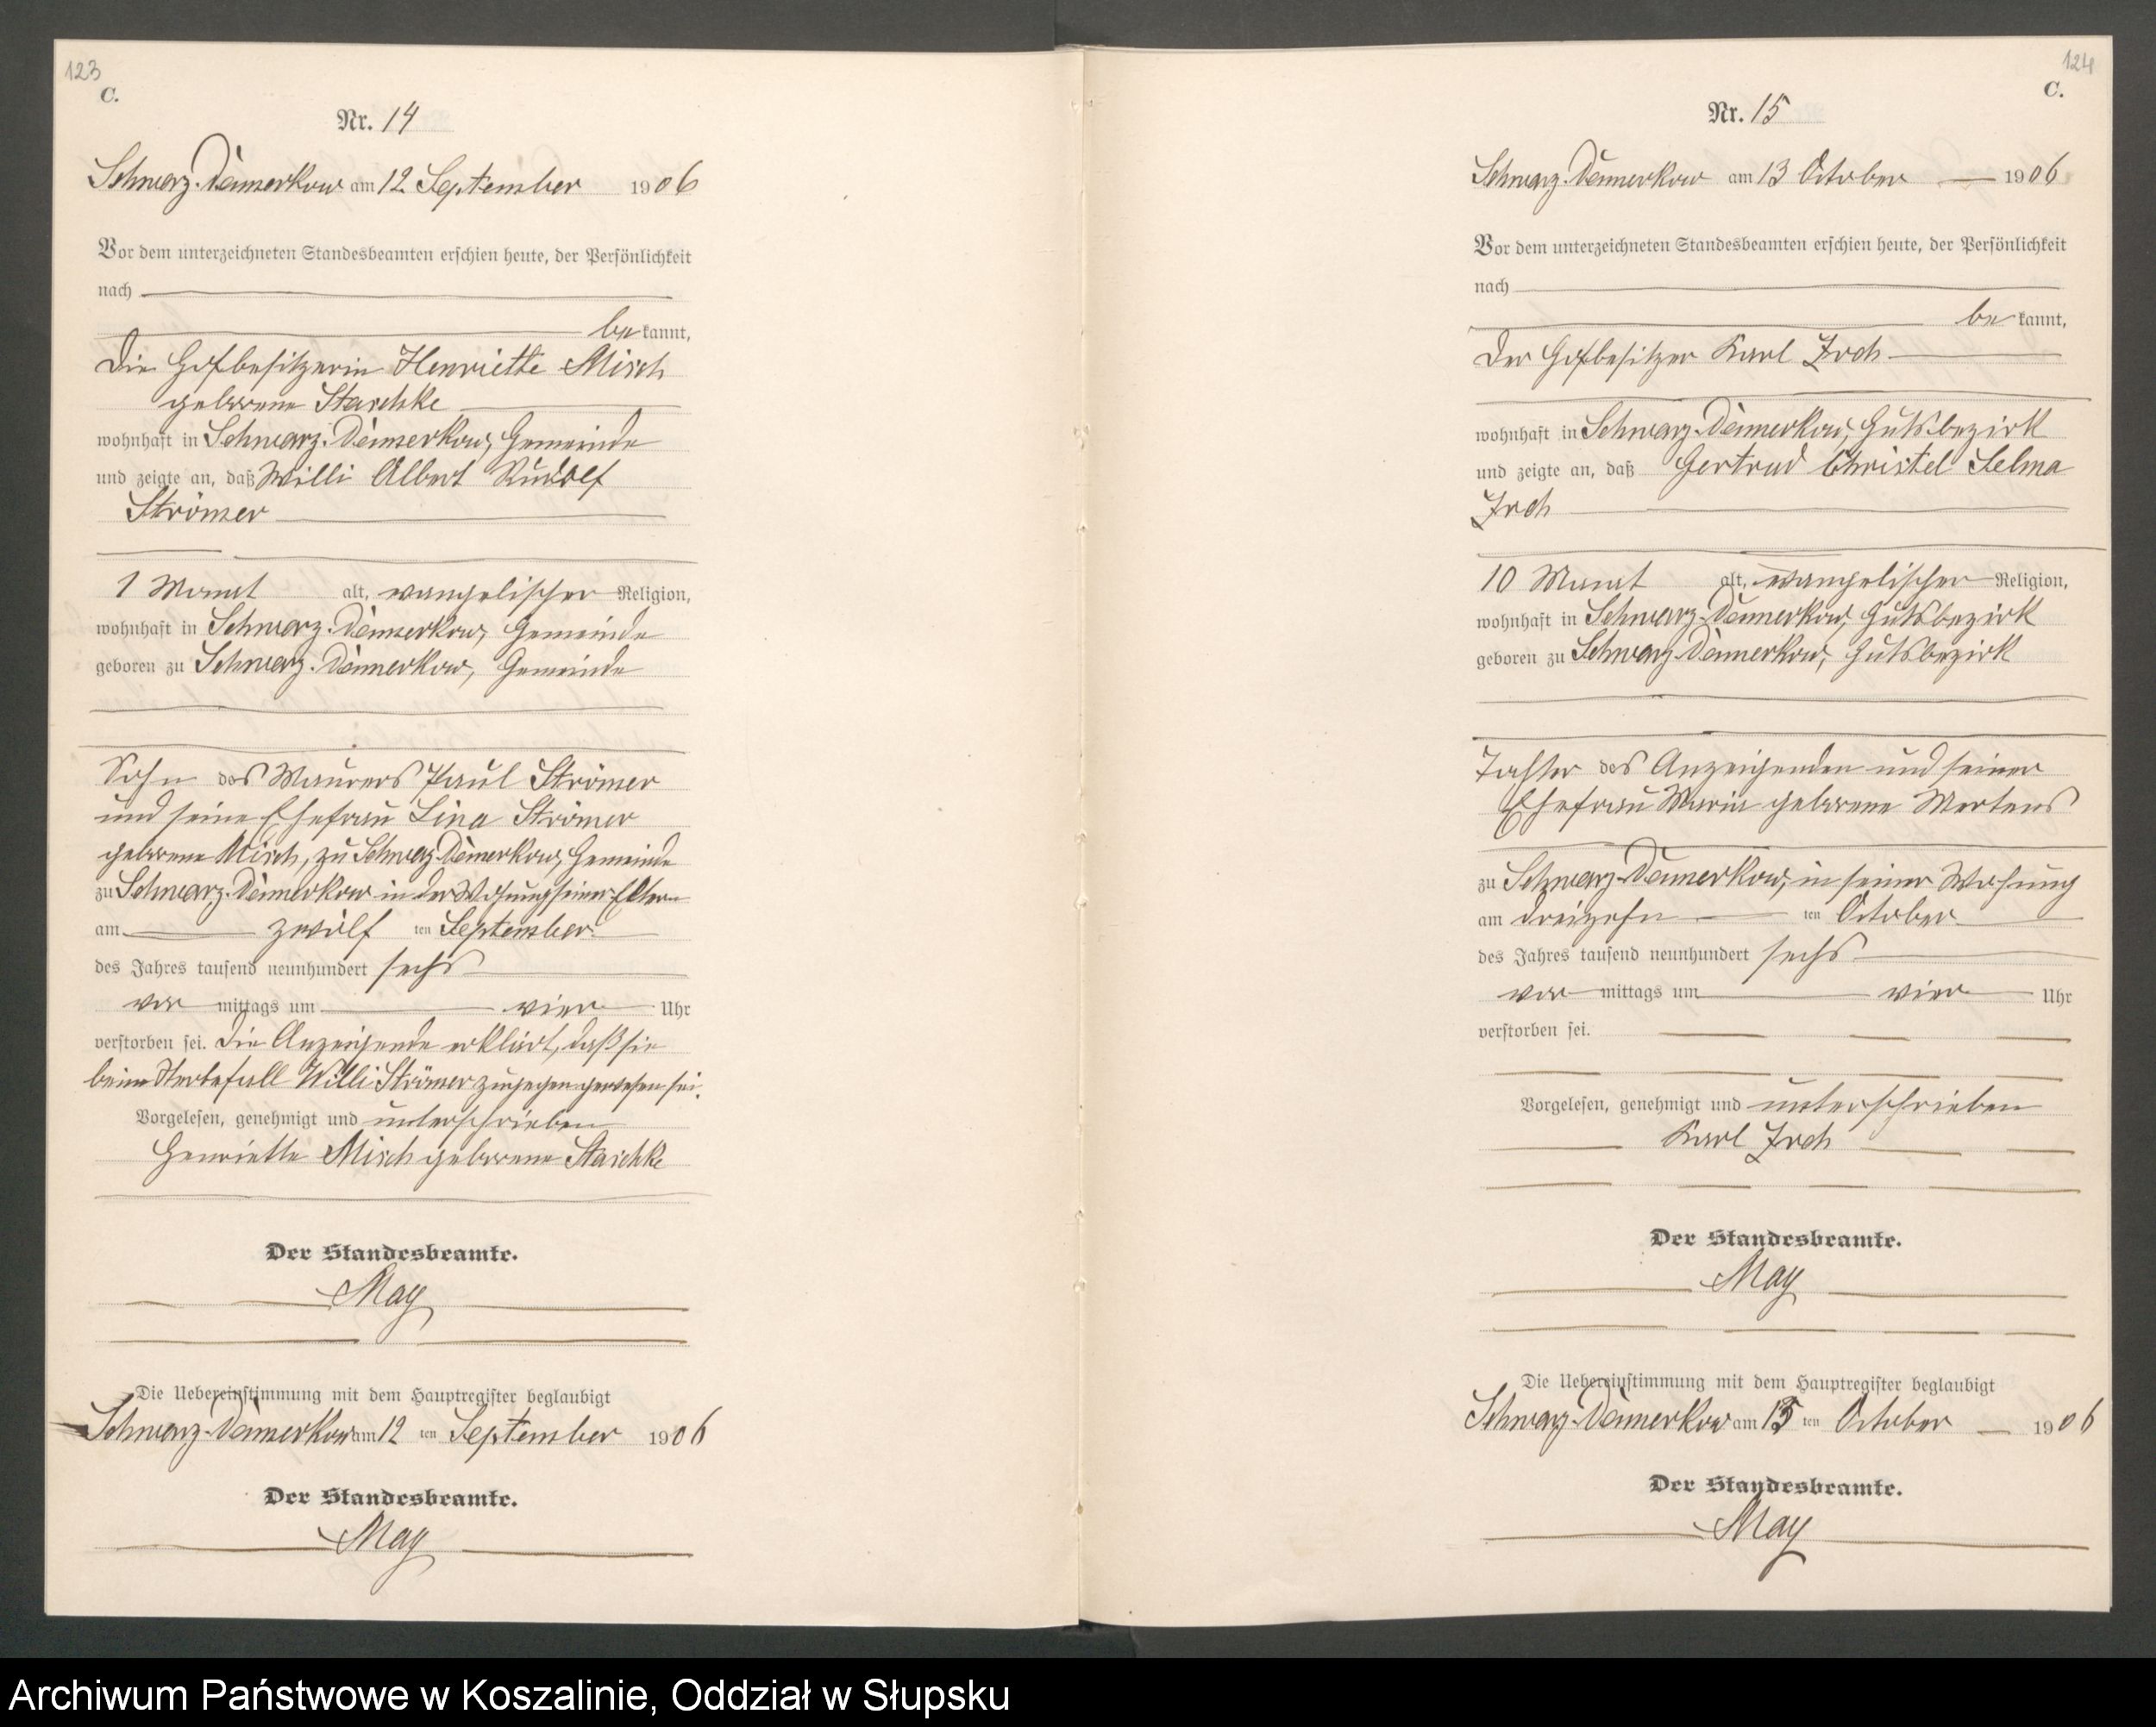 123
C.
Nr. 14
Schwarz-Dämerkow am 12 September 1906
Vor dem unterzeichneten Standesbeamten erschien heute, der Persönlichkeit
nach
bekannt,
die Hofbesitzerin Henriette Misch
geborene Staschke
wohnhaft in Schwarz-Dämerkow, Gemeinde
und zeigte an, daß Willi Albert Rudolf
Strömer
1 Monat alt, evangelischer Religion,
wohnhaft in Schwarz-Dämerkow, Gemeinde
geboren zu Schwarz-Dämerkow, Gemeinde
Sohn des Maurers Paul Strömer
und seine Ehefrau Lina Strömer
geborene Misch, zu Schwarz-Dämerkow, Gemeinde
zu Schwarz-Dämerkow in der Wohnung seiner Eltern
am zwölf ten September
des Jahres tausend neunhundert sechs
vor mittags um vier Uhr
verstorben sei. Die Anzeigende erklärt, daß sie
beim Sterbefall Willi Strömer zugegen gewesen sei.
Vorgelesen, genehmigt und unterschrieben
Henriette Misch geborene Staschke
Der Standesbeamte.
May
Die Uebereinstimmung mit dem Hauptregister beglaubigt
Schwarz-Dämerkow am 12 ten September 1906
Der Standesbeamte.
May
124
C.
Nr. 15
Schwarz-Dämerkow am 13 October 1906
Vor dem unterzeichneten Standesbeamten erschien heute, der Persönlichkeit
nach
bekannt,
der Hofbesitzer Karl
wohnhaft in Schwarz-Dämerkow, Gutsbezirk
und zeigte an, daß Gertrud Christel Selma
10 Monat alt, evangelischer Religion,
wohnhaft in Schwarz-Dämerkow, Gutsbezirk
geboren zu Schwarz-Dämerkow, Gutsbezirk
Tochter des Anzeigenden und seiner
Ehefrau Maria geborene Mertens
zu Schwarz-Dämerkow, in seiner Wohnung
am dreizehn ten October
des Jahres tausend neunhundert sechs
vor mittags um vier Uhr
verstorben sei.
Vorgelesen, genehmigt und unterschrieben
Karl
Der Standesbeamte.
May
Die Uebereinstimmung mit dem Hauptregister beglaubigt
Schwarz-Dämerkow am ten October 1906
Der Standesbeamte.
May
Archiwum Państwowe w Koszalinie, Oddział w Słupsku